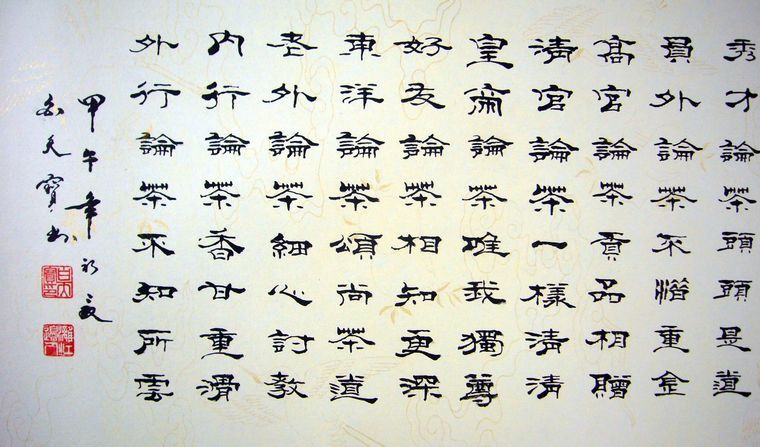 秀才論茶頭頭是道
員外論茶不惜重金
高官論茶貢品相贈
清官論茶一樣清清
皇帝論茶唯我獨尊
好友論茶相知更深
東洋論茶頌尚茶道
老外論茶細心討教
內行論茶香甘重滑
外行論茶不知所雲
甲午年初夏
寶書